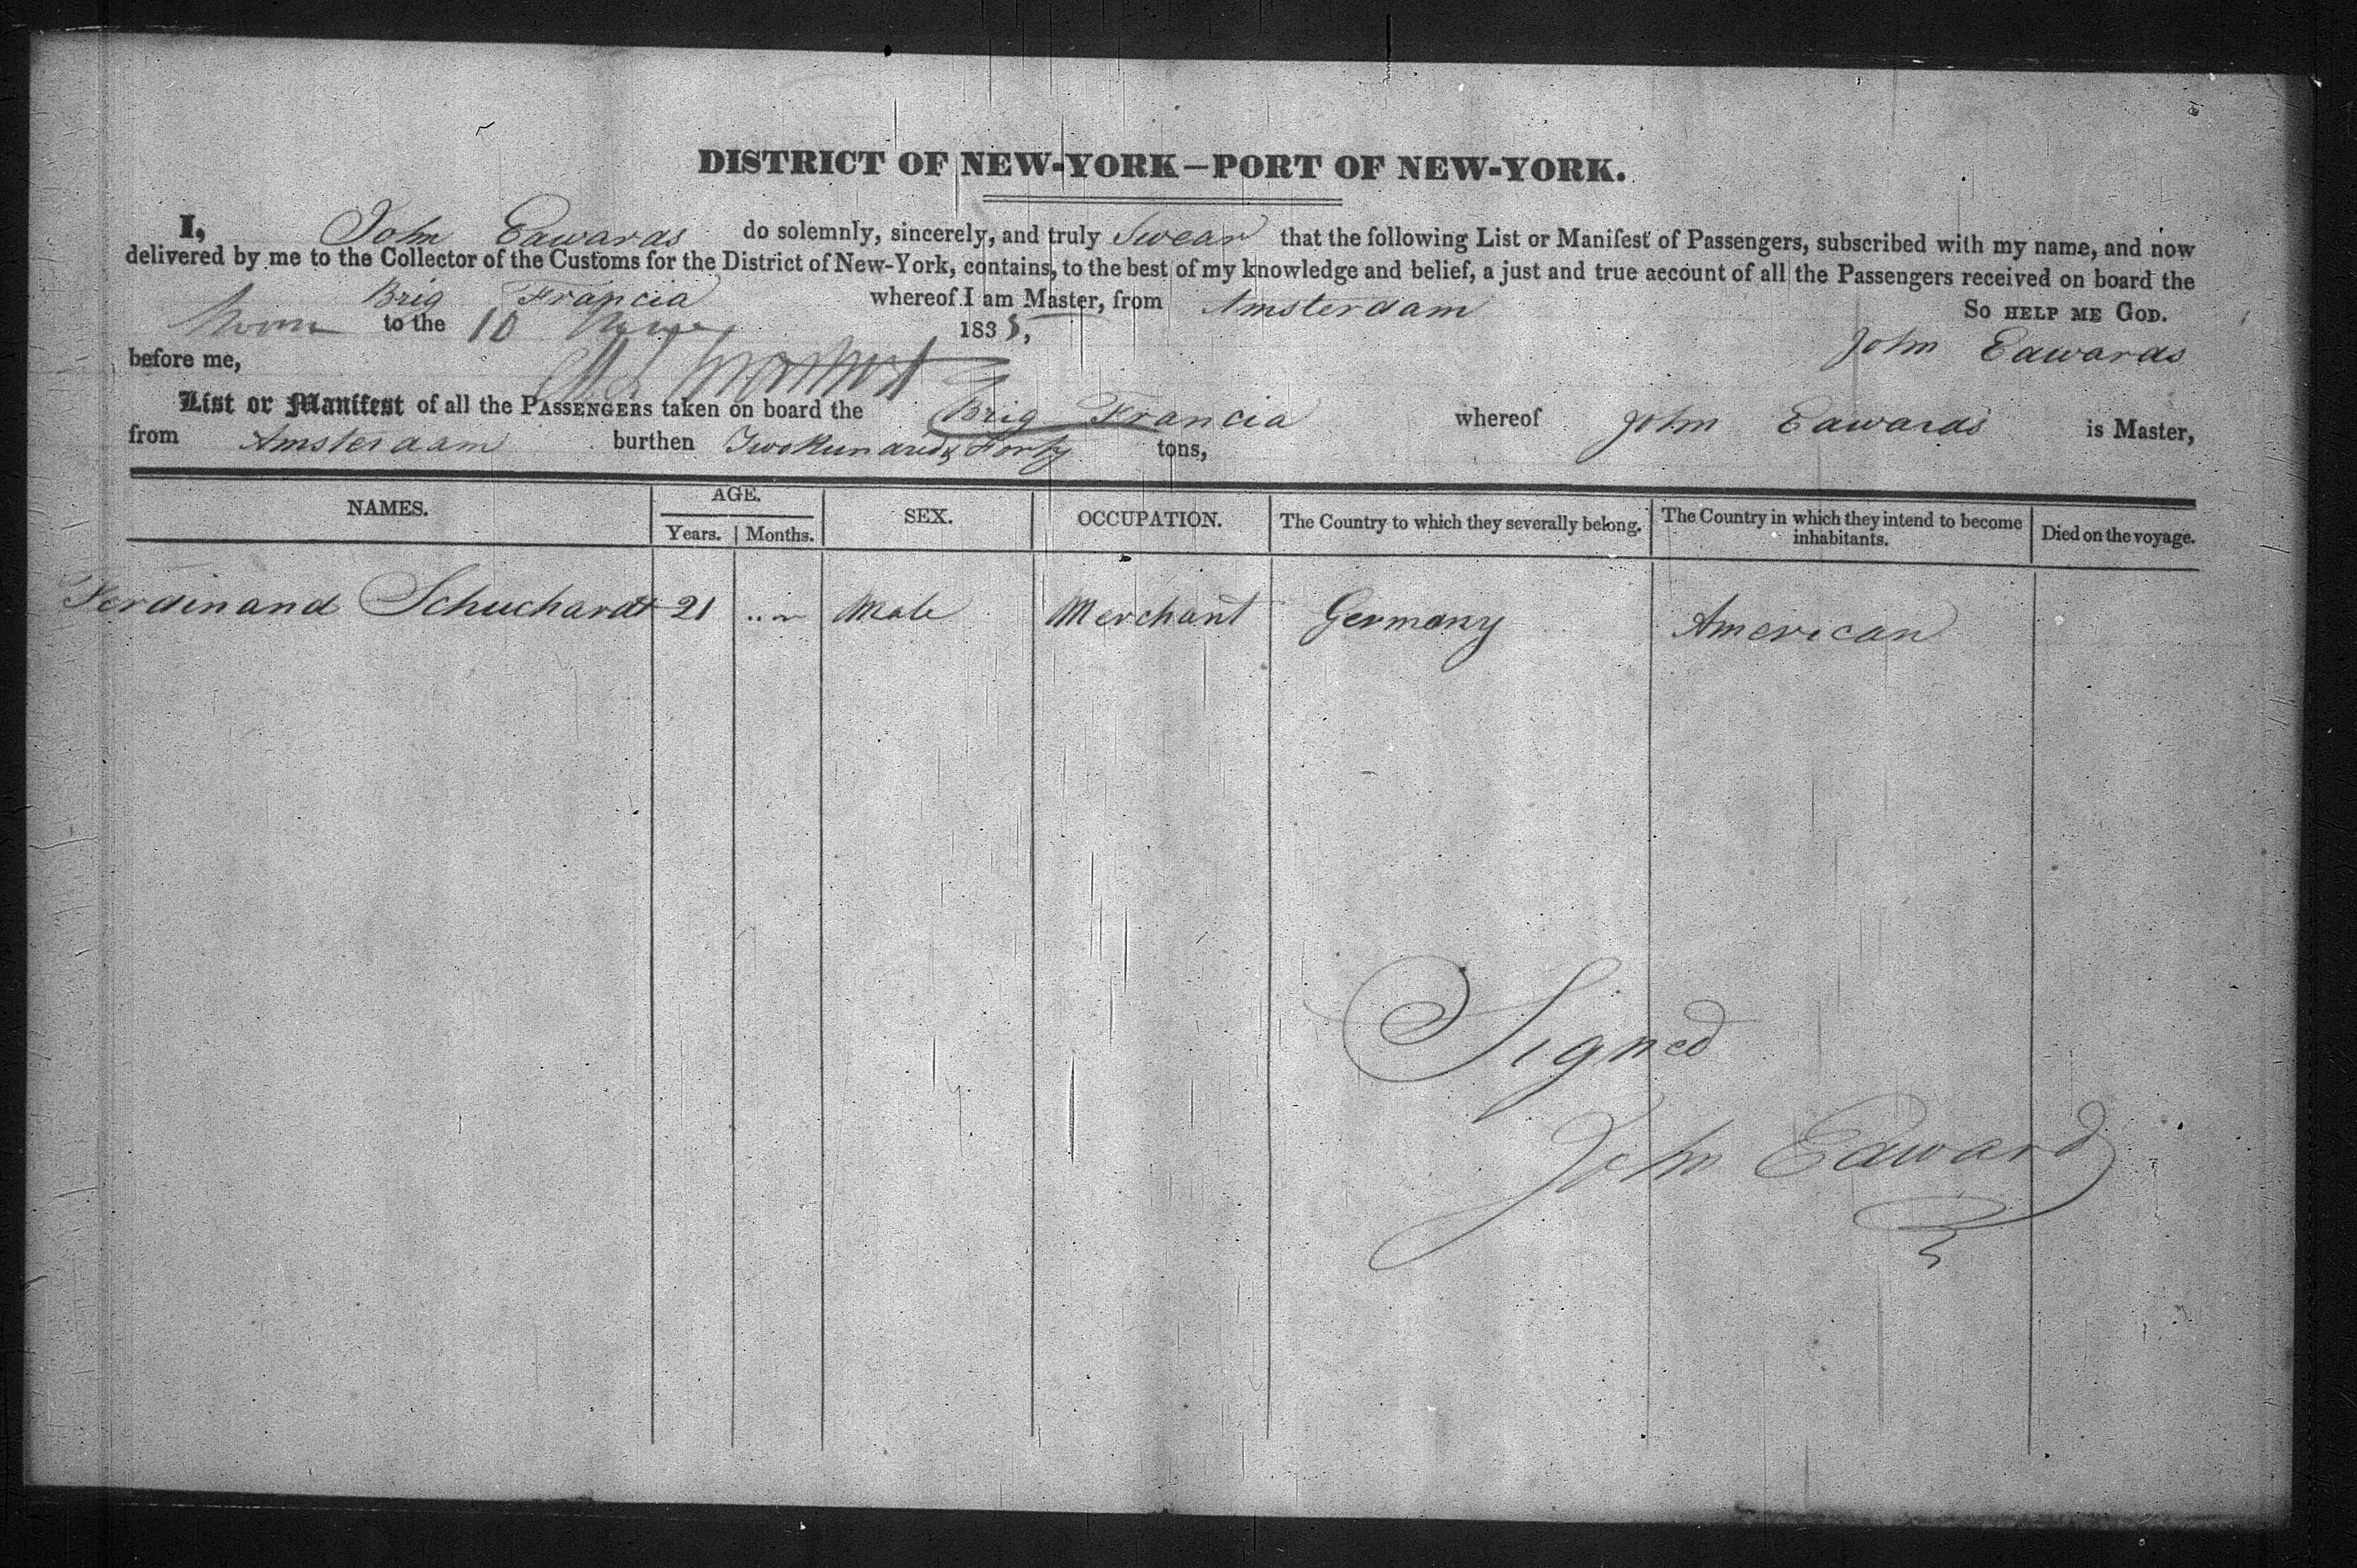 DISTRICT OF NEW-YORK—PORT OF NEW-YORK.
I, John Edwards do solemnly, sincerely, and truly Swear that the following List or Manifest of Passengers, subscribed with my name, and now
delivered by me to the Collector of the Customs for the District of New-York, contains, to the best of my knowledge and belief, a just and true account of all the Passengers received on board the
Brig Francia whereof I am Master, from Amsterdam So HELP ME GOD.
Sworn to the 10 1835,
John Edwards
before me,
List or Manifest of all the PASSENGERS taken on board the Brig Francia whereof John Edwards is Master,
from Amsterdam burthen Two Hundred & Forty tons,
NAMES. AGE. Years. Months. SEX. OCCUPATION. The Country to which they severally belong. The Country in which they intend to become inhabitants. Died on the voyage.
Ferdinand Schuchardt 21 .. .. Male Merchant Germany American
Signed
John Edward